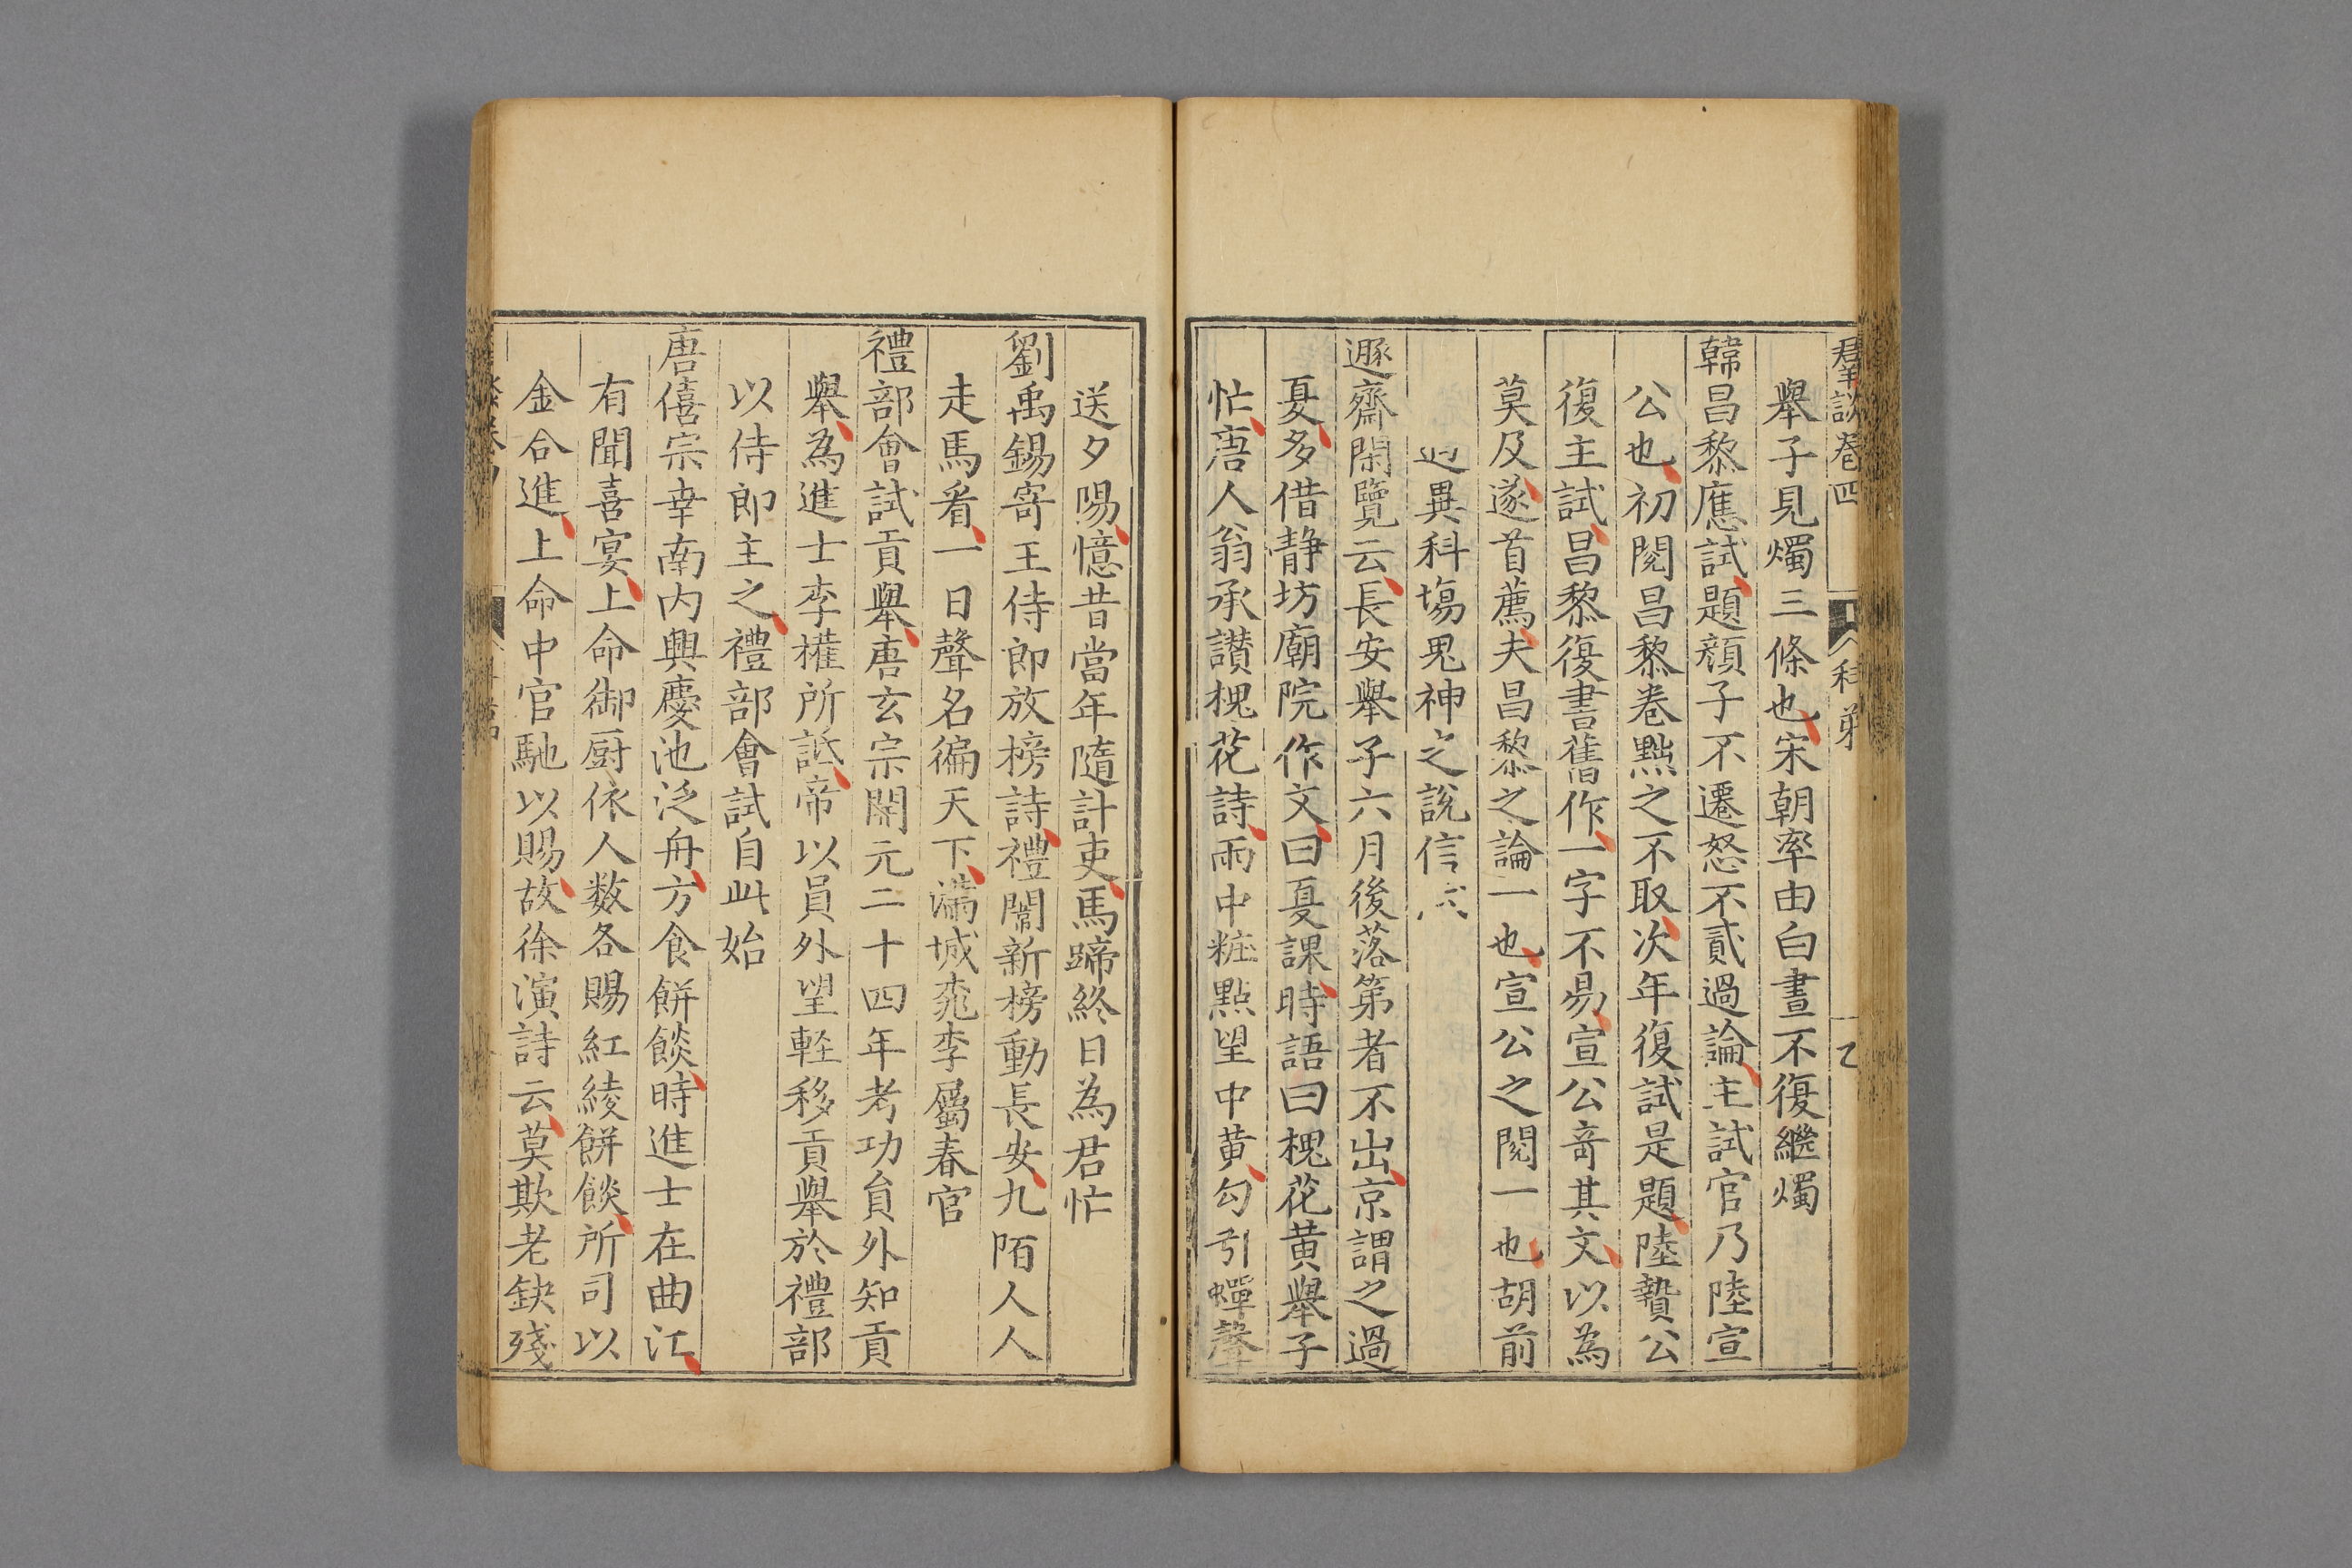 羣談卷四
科第
舉子見燭三條也宋朝率由白晝不復繼燭
韓昌黎應試題顔子不遷怒不貳過論主試官乃陸宣
公也初閱昌黎卷點之不取次年復試是題陸贄公
復主試昌黎復書舊作一字不易宣公竒其文以為
莫及遂首薦夫昌黎之論一也宣公之閱一也胡前
異科塲鬼神之說信
遯齋閑覽云長安舉子六月後落第者不出京謂之過
夏多借静坊廟院作文曰夏課時語曰槐花黄舉子
忙唐人翁承讚槐花詩雨中粧點望中黄勾引蟬聲
送夕陽憶昔當年隨計吏馬蹄終日為君忙
劉禹錫寄王侍郎放榜詩禮闈新榜動長安九陌人人
走馬看一日聲名徧天下滿城桃李屬春官
禮部會試貢舉唐玄宗開元二十四年考功員外知貢
舉為進士李權所詆帝以員外望軽移貢舉於禮部
以侍郎主之禮部會試自此始
唐僖宗幸南内興慶池泛舟方食餅餤時進士在曲江
有聞喜宴上命御厨依人数各賜紅綾餅餤所司以
金合進上命中官馳以賜故徐演詩云莫欺老缺殘